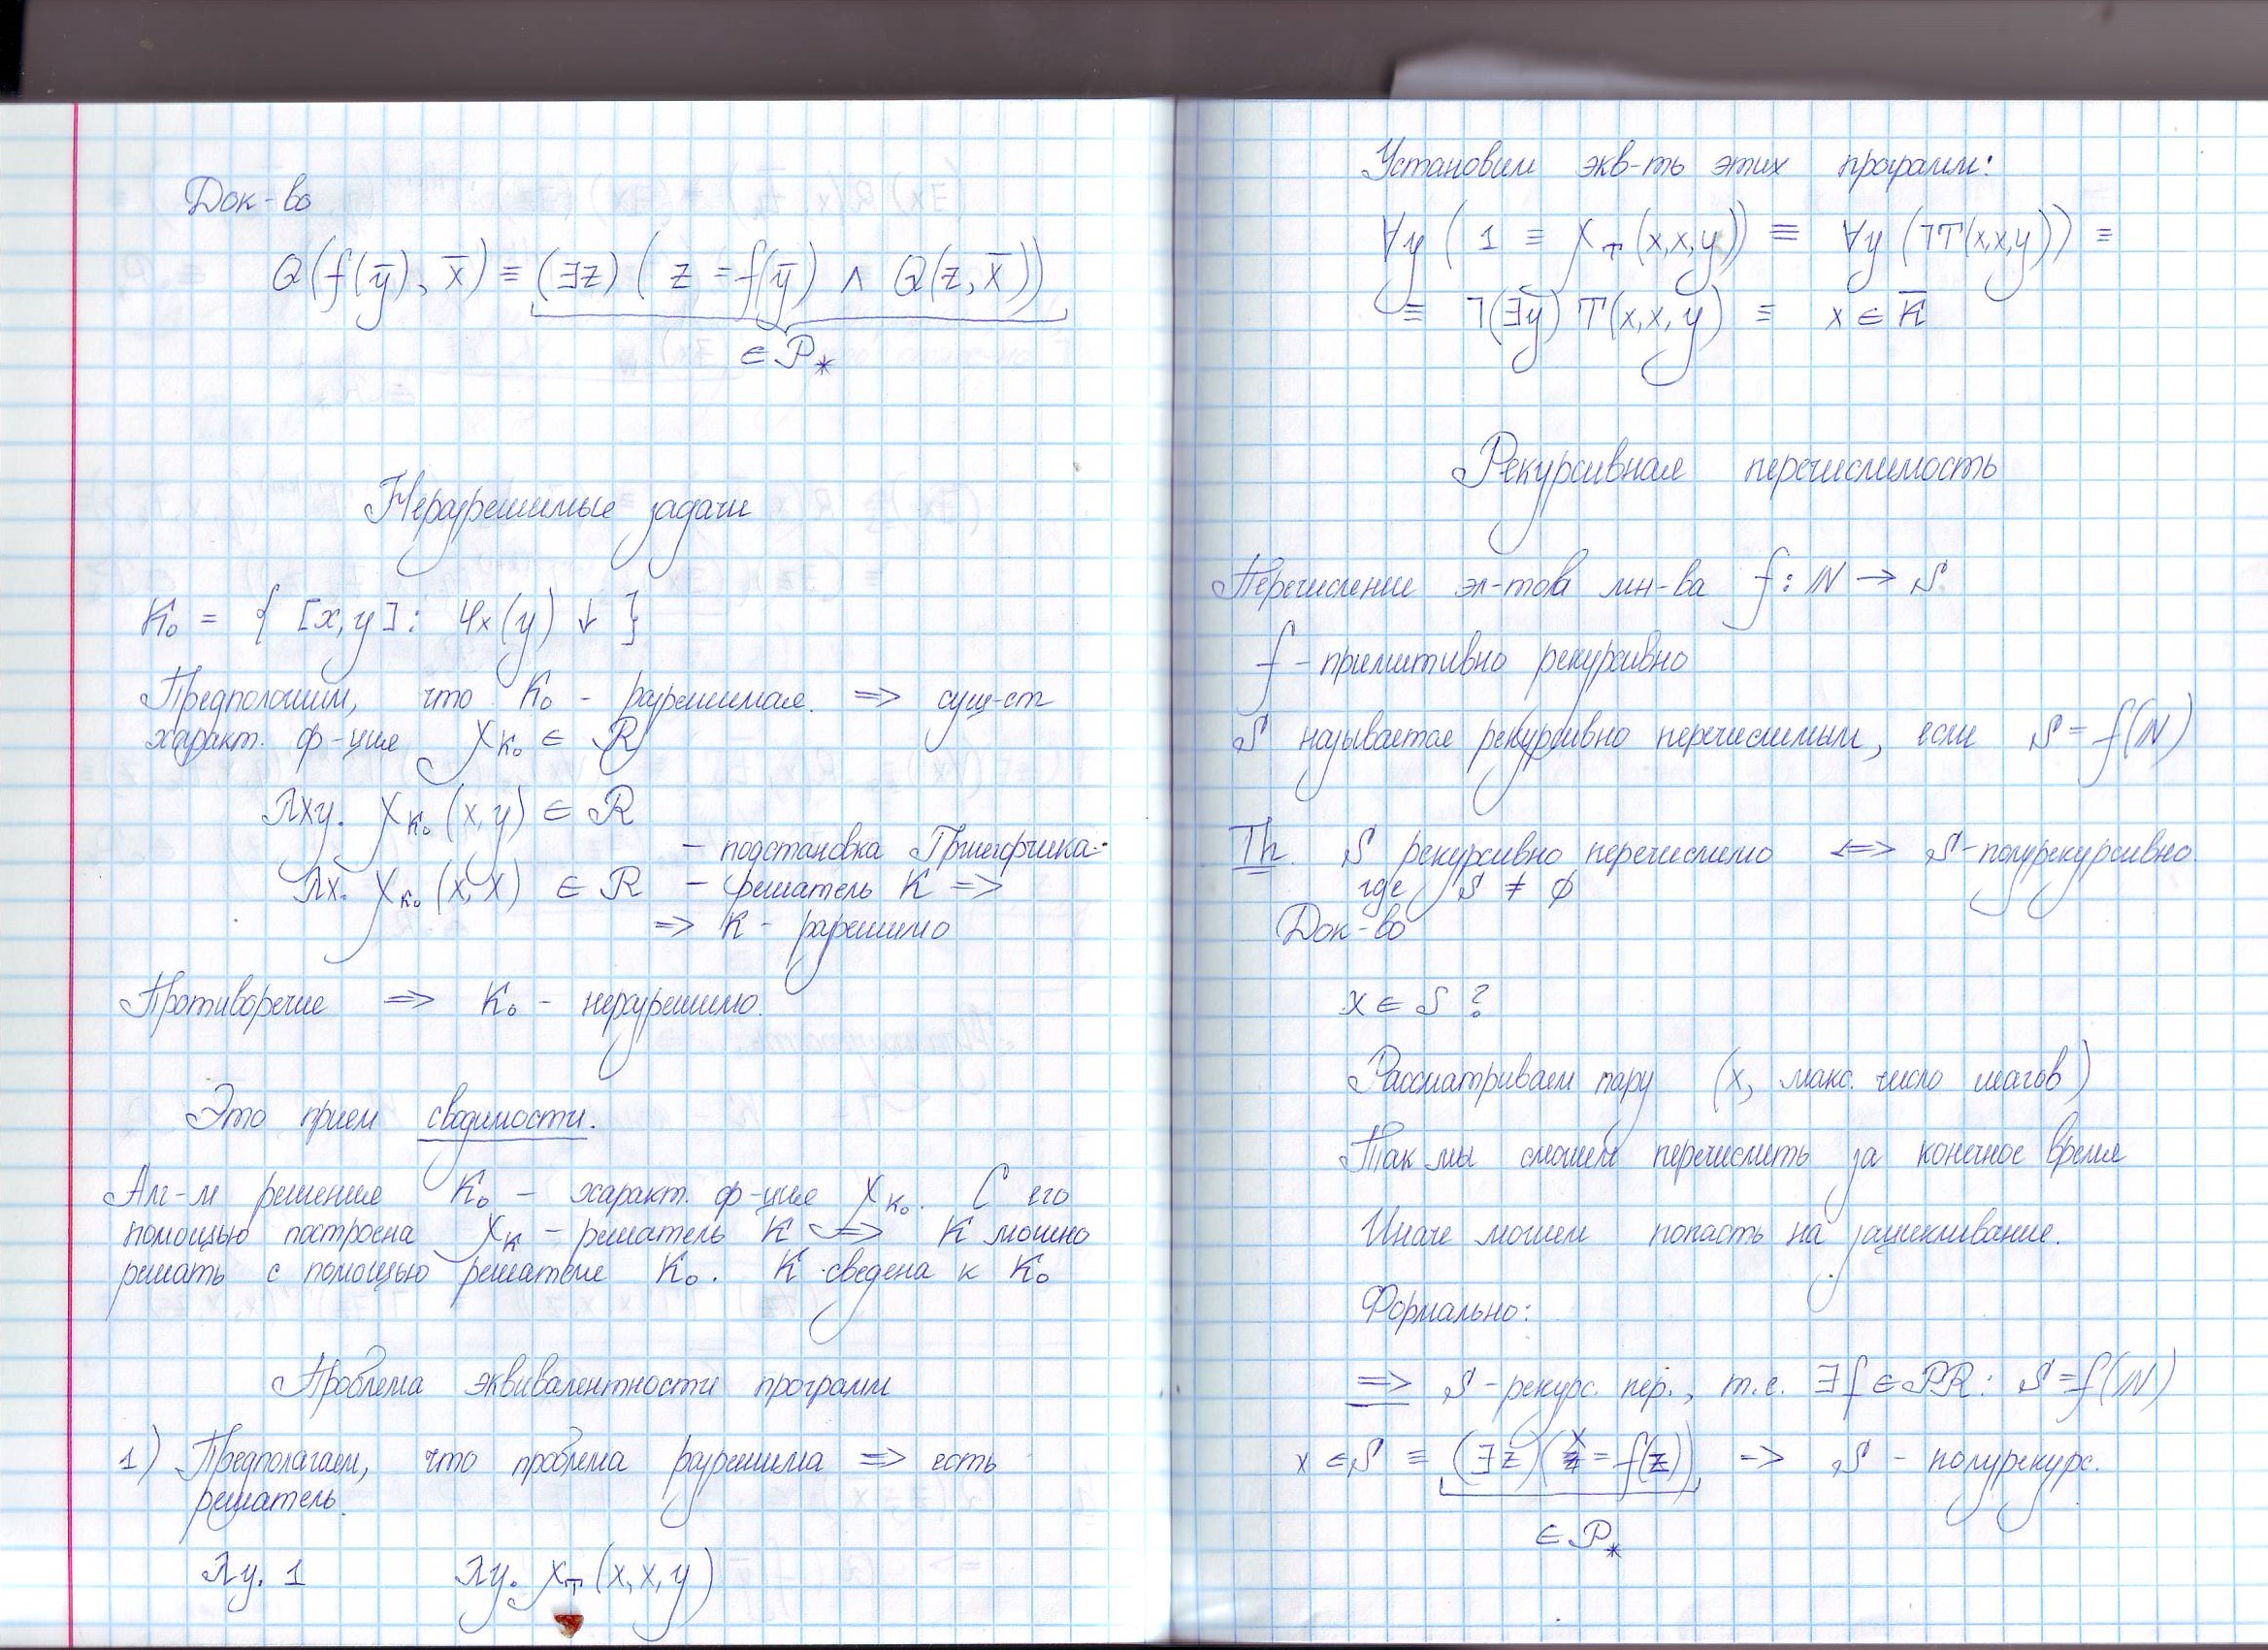 Док-во
Q(f(ȳ), x̄) ≡ (∃z) ( z = f(ȳ) ∧ Q(z, x̄))
∈ P*
Неразрешимые задачи
K₀ = { [x, y] : φₓ(y) ↓ }
Предположим, что K₀ - разрешимая. => сущ-ст
характ. ф-ция χ_K₀ ∈ R
λxy. χ_K₀ (x, y) ∈ R
- подстановка Гжегорчика.
λx. χ_K₀ (x, x) ∈ R - решатель K =>
=> K - разрешимо
Противоречие => K₀ - неразрешимо.
Это прием сводимости.
Алг-м решения K₀ - характ. ф-ция χ_K₀. С его
помощью построена χ_K - решатель K <=> K можно
решать с помощью решателя K₀. K сведена к K₀
Проблема эквивалентности программ
1) Предполагаем, что проблема разрешима => есть
решатель.
λy. 1 λy. χ_T (x, x, y)
Установим экв-ть этих программ:
∀y ( 1 ≡ χ_T (x, x, y)) ≡ ∀y (¬T(x, x, y)) ≡
≡ ¬(∃y) T(x, x, y) ≡ x ∈ K̄
Рекурсивная перечислимость
Перечисление эл-тов мн-ва f : N → S
f - примитивно рекурсивно
S называется рекурсивно перечислимым, если S = f(N)
Th. S рекурсивно перечислимо <=> S - полурекурсивно
где S ≠ ∅
Док-во
x ∈ S ?
Рассматриваем пару (x, макс. число шагов)
Так мы сможем перечислить за конечное время
Иначе можем попасть на зацикливание.
Формально:
=> S - рекурс. пер., т.е. ∃f ∈ PR : S = f(N)
x ∈ S ≡ (∃z) (x = f(z)) => S - полурекурс.
∈ P*